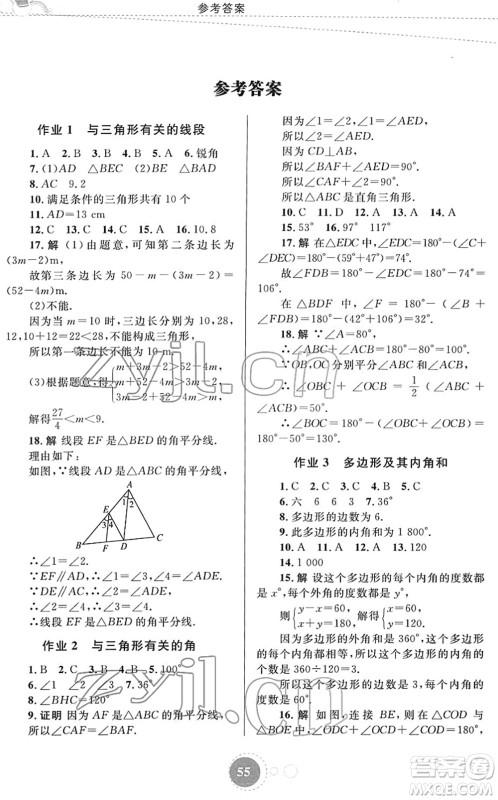 参考答案
参考答案
作业1 与三角形有关的线段
1. A 2. B 3. B 4. A 5. B 6. 锐角
7. (1)AD △BEC (2)BE △BAD
8. AC 9. 2
10. 满足条件的三角形共有 10 个
11. AD=13 cm
12. C 13. C 14. C 15. A 16. 10.8
17. 解 (1)由题意，可知第二条边长为
(3m-2)m，
故第三条边长为 50-m-(3m-2)=
(52-4m)m.
(2)不能.
因为当 m=10 时，三边长分别为 10,28,
12,10+12=22<28，不能构成三角形，
所以第一条边长不能为 10 m.
(3)根据题意，得
m+3m-2>52-4m
m+52-4m>3m-2
解得 27/4<m<9.
18. 解 线段 EF 是△BED 的角平分线.
理由如下：
如图，∵线段 AD 是△ABC 的角平分线，
A
1 2
E
3 4
B F D C
∴∠1=∠2.
∵EF∥AD，∴∠4=∠ADE.
∵DE∥AC，∴∠2=∠ADE.
∴∠4=∠2.
∵EF∥AD，∴∠3=∠1.
∴∠3=∠4.
∴线段 EF 是△BED 的角平分线.
作业2 与三角形有关的角
1. B 2. A 3. B 4. B 5. 100°
6. ∠2 ∠A ∠1 7. 36°
8. ∠BHC=120°
9. 证明 因为 AF 是△ABC 的角平分线，
所以∠CAF=∠BAF.
因为∠1=∠2，∠1=∠AED，
所以∠2=∠AED.
因为 CD⊥AB，
所以∠BAF+∠AED=90°.
所以∠CAF+∠2=90°.
所以△ABC 是直角三角形.
10. C 11. D 12. A 13. C 14. A
15. 53° 16. 97° 117°
17. 解 在△EDC 中，∠EDC=180°-(∠C+
∠DEC)=180°-(∠C+∠AEF).
故∠FDB=180°-∠EDC=∠C+∠AEF.
在△BDF 中，∠BFD=180°-(∠B+
∠FDB)=180°-(∠B+∠C+∠AEF).
18. 解 ∵∠A=80°，
∴∠ABC+∠ACB=180°-80°=100°.
∵OB,OC 分别平分∠ABC 和∠ACB，
∴∠OBC+∠OCB=1/2(∠ABC+
∠ACB)=50°.
∴∠BOC=180°-(∠OBC+∠OCB)=
180°-50°=130°.
作业3 多边形及其内角和
1. C 2. C 3. C 4. B 5. C
6. 六 6 6 3 7. 36°
8. 这个多边形的边数为 6.
9. 此多边形的内角和为 1 800°.
10. A 11. D 12. A 13. 120
14. 1 000
15. 解 设这个多边形的每个内角的度数都
是 x°，每个外角的度数都是 y°，
则 y-x=60, x+y=180,
∵多边形的外角和为 360°，这个多边形的
边数为 360÷120=3.
∴这个多边形的边数是 3，每个内角的度
数是 60°.
16. 解 如图，连接 BE，则在△COD 与
△BOE 中，∵∠COD+∠C+∠D=180°，
55
zyjl.cn
zyjl.cn
答案圈
MXQE.COM